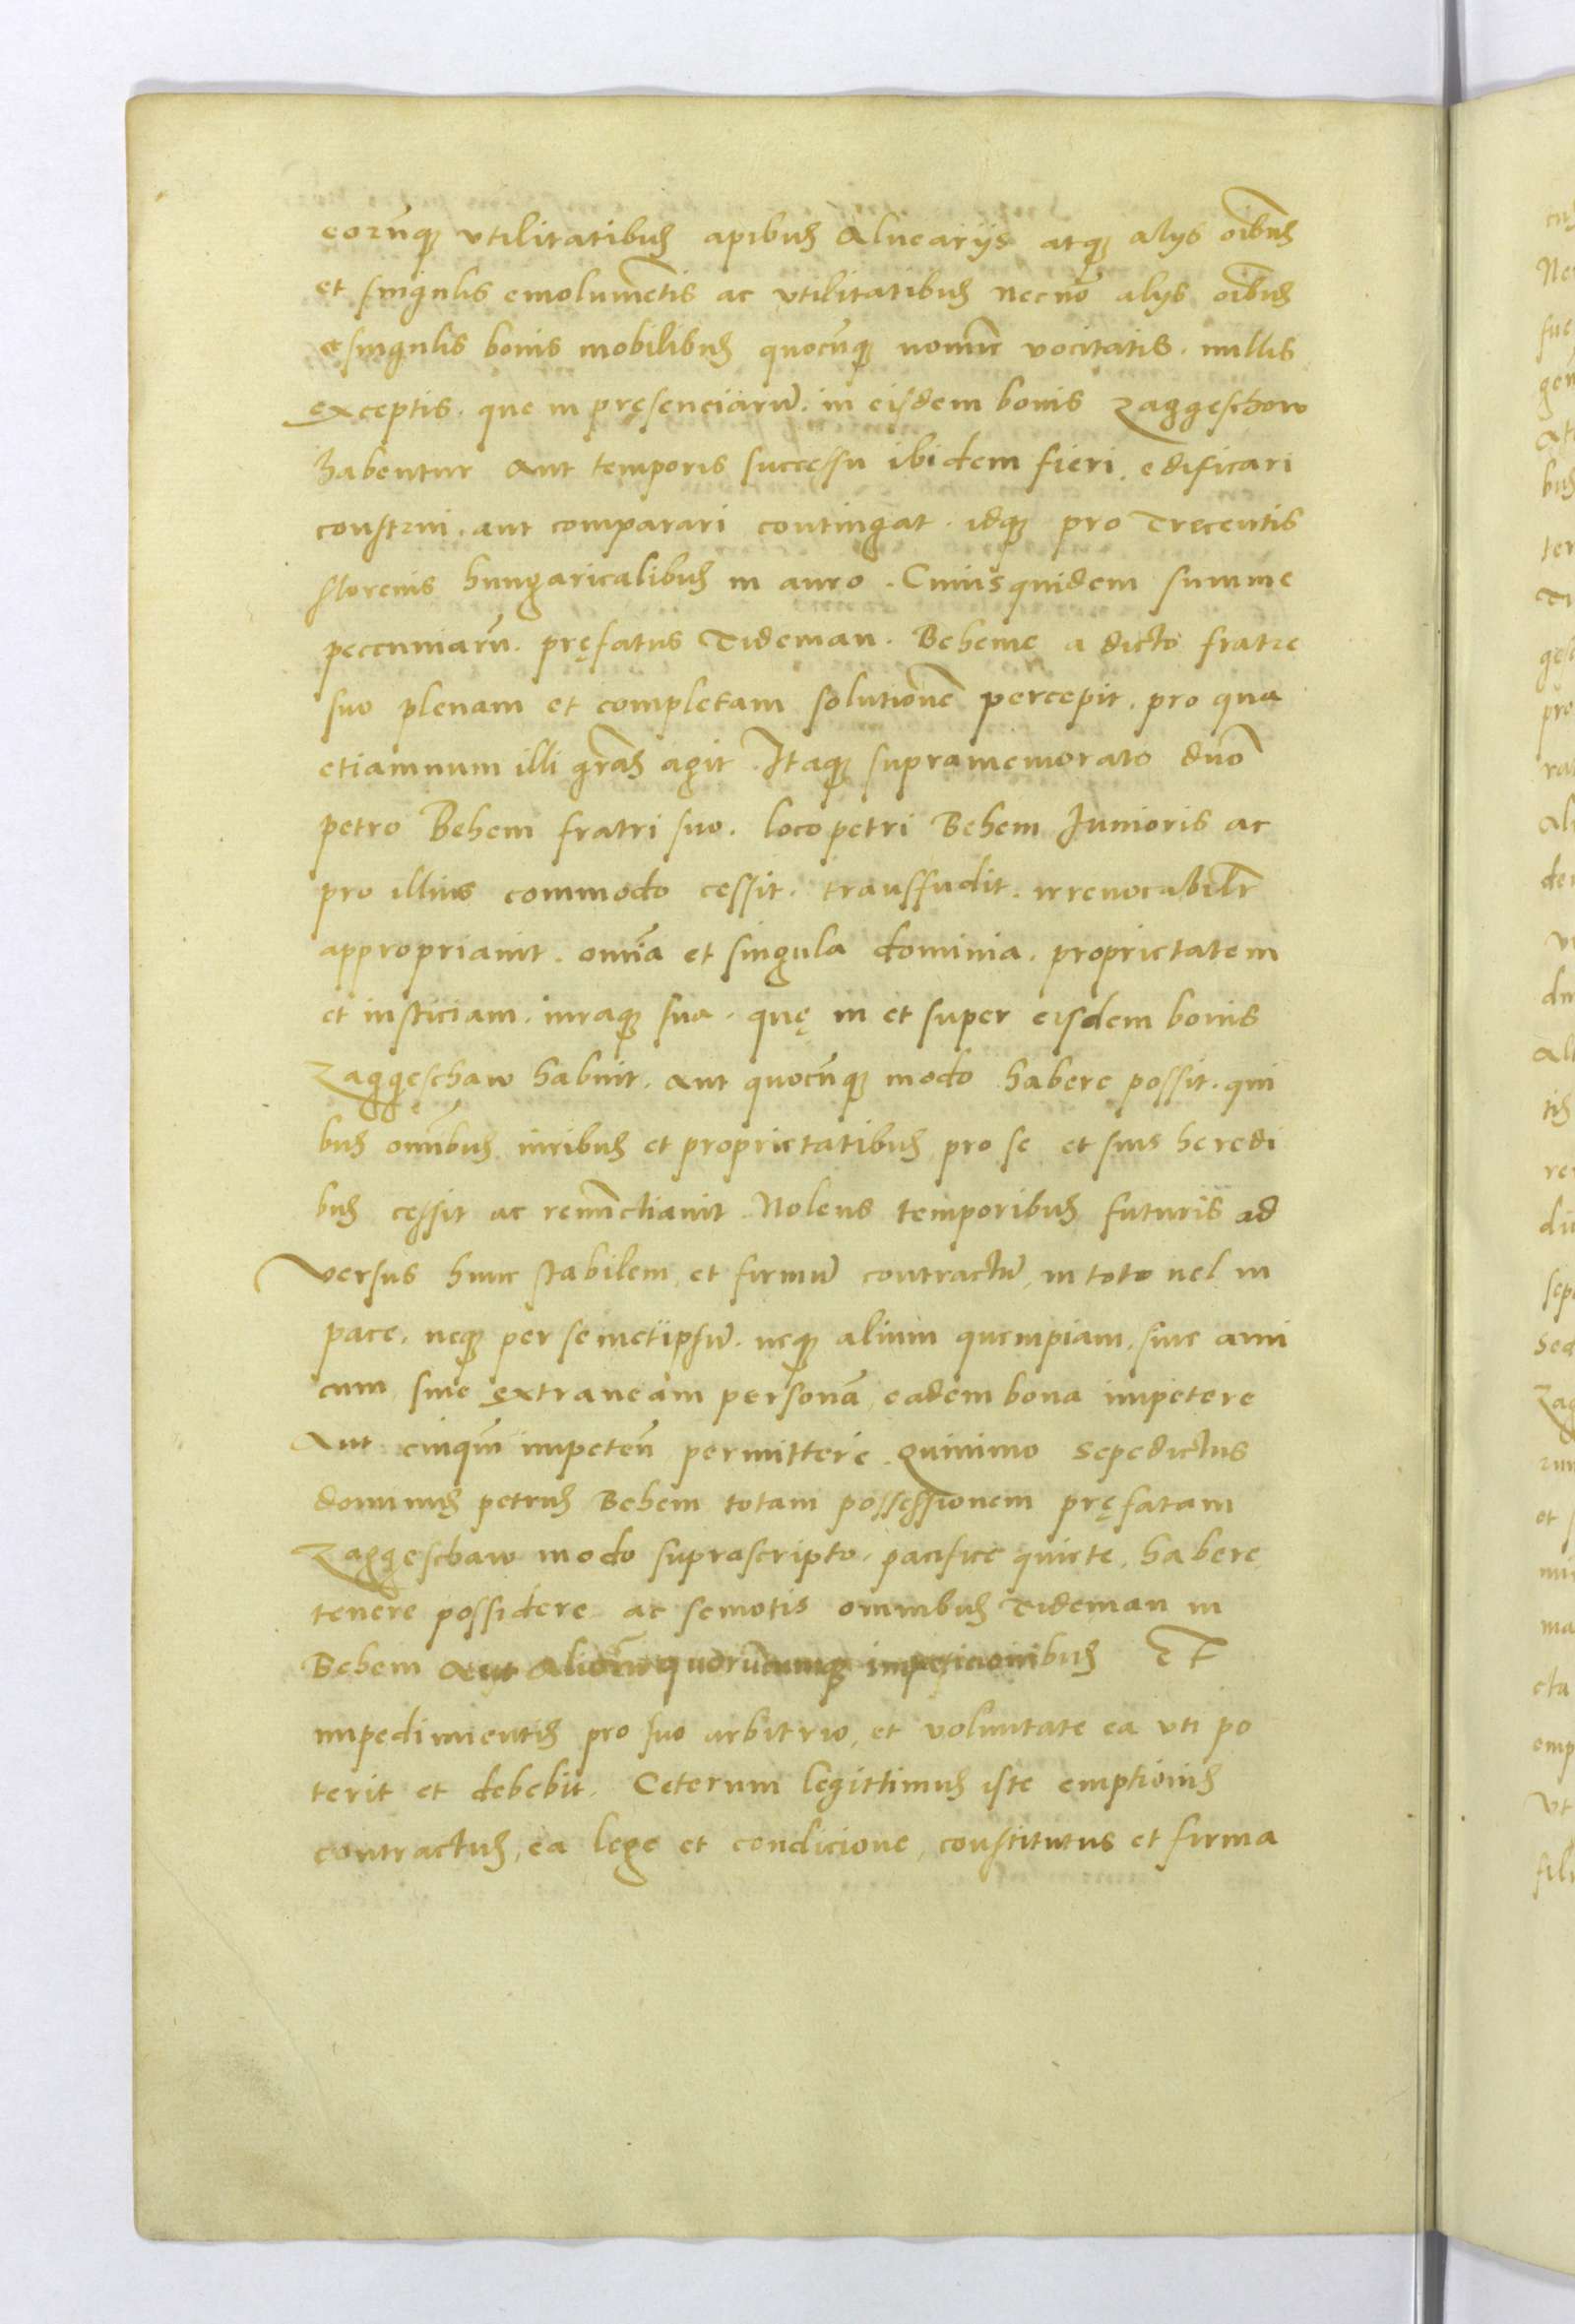 eorūq; vtilitatibus apibus Aluearijs atq; alijs oibus
et singulis emolumētis ac vtilitatibus necnō alijs oibus
et singulis bonis mobilibus quocūq; nomine vocitatis. nullis
exceptis. que in pręsenciarū. in eisdem bonis Zaggeschow
habentur Aut temporis successu ibidem fieri. edificari
construi. aut comparari contingat. idq; pro Trecentis
florenis hungaricalibus in auro. Cuiusquidem summe
peccuniarū. pręfatus Tideman. Beheme a dicto fratre
suo plenam et completam solutionē percepit. pro qua
etiamnum illi grās agit. Itaq; supramemorato dn̄o
petro Behem fratri suo. loco petri Behem Iunioris ac
pro illius commodo cessit. transfudit. irreuocabilr̄
appropriauit. omīa et singula dominia. proprietatem
et iusticiam. iuraq; sua. quę in et super eisdem bonis
Zaggeschaw habuit. Aut quocūq; modo habere possit. qui
bus omībus iuribus et proprietatibus pro se et suis heredi
bus cessit ac renūctiauit. Nolens temporibus futuris ad
versus hunc stabilem et firmū contractū, in toto uel in
parte. neq; per semetipsū. neq; alium quempiam. siue ami
cum siue extraneam personā, eadem bona impetere
Aut cuiq̄m impeten̄ permittere. Quinimo sepedictus
dominus petrus Behem totam possessionem pręfatam
Zaggeschaw modo suprascripto. pacifice quiete, habere
tenere possidere ac semotis omnibus Tideman in
Behem Aut Aliorū quorūcumq; impeticionibus ET
impedimentis pro suo arbitrio, et voluntate ea vti po
terit et debebit. Ceterum legittimus iste emptionis
contractus, ea lege et condicione, constitutus et firma